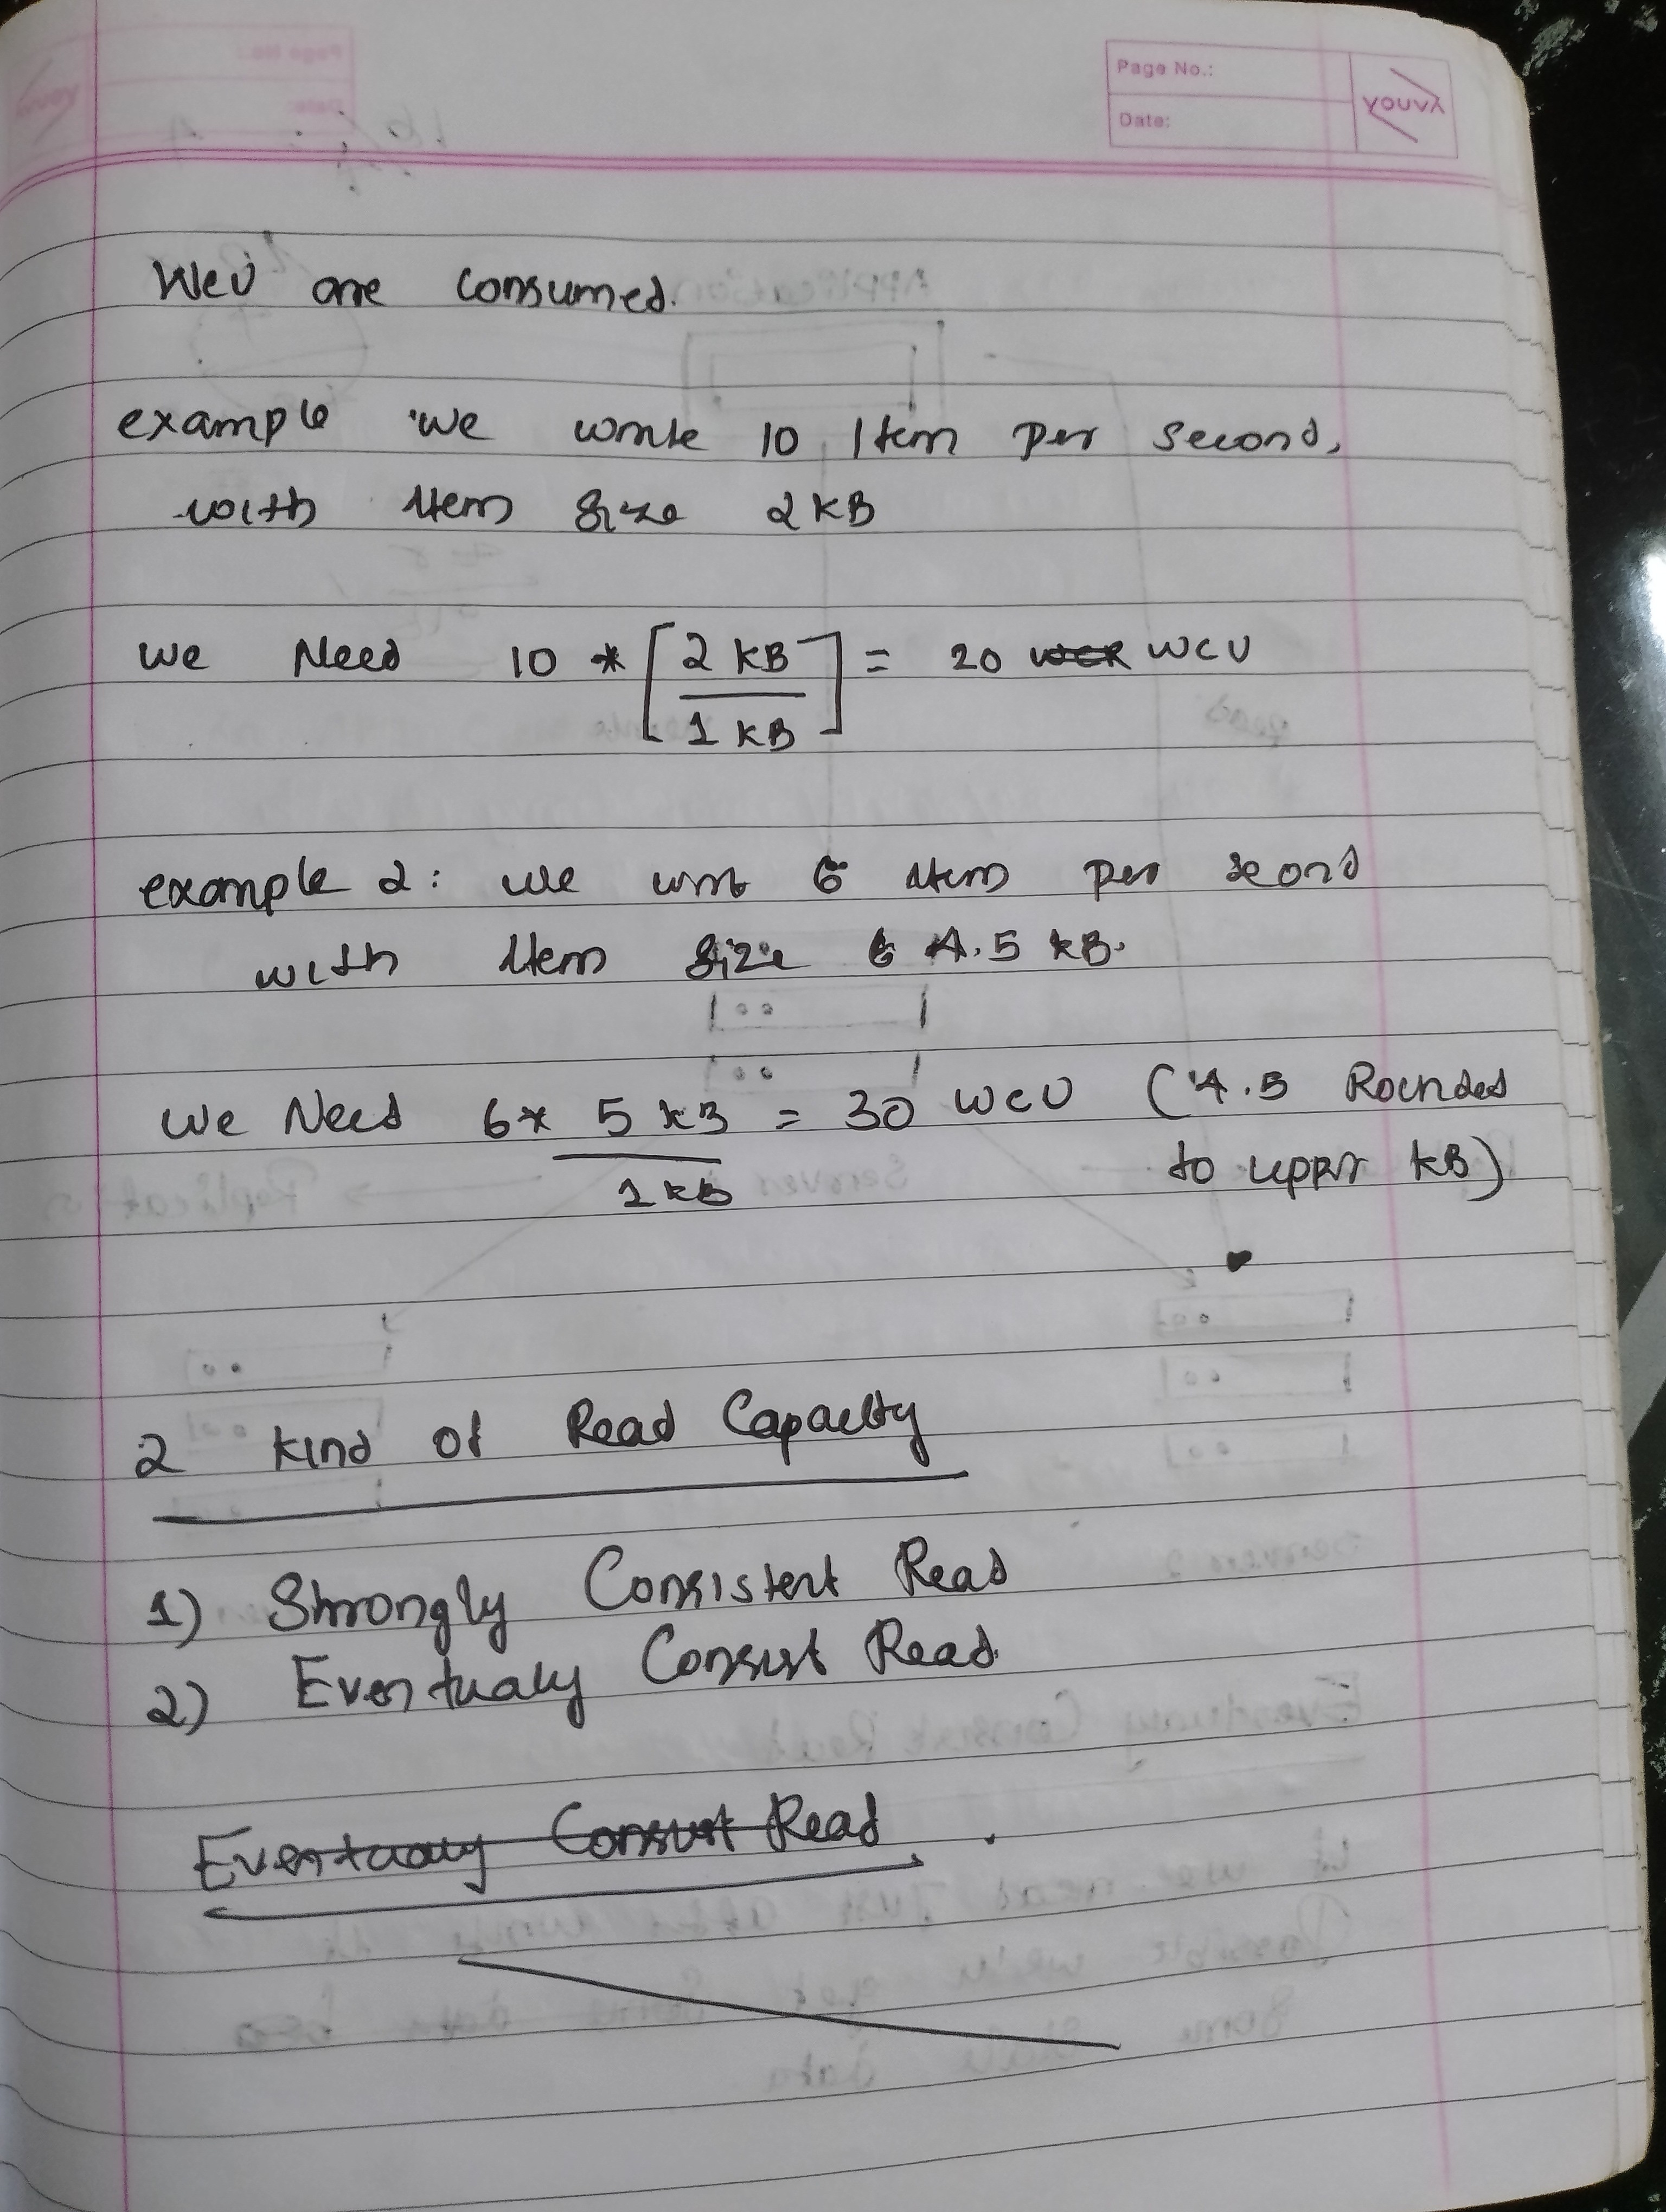 Page No.:
Date:
YOUVA
WCU are consumed.
example we write 10 Item per second,
with Item Size 2 KB
We Need 10 * [2 KB / 1 KB] = 20 WCR WCU
example 2: we writ 6 Item per seond
with Item Size 6 4.5 KB.
We Need 6 * 5 KB / 1 KB = 30 WCU (4.5 Rounded
to uppr KB)
2 Kind of Read Capacity
1) Strongly Consistent Read
2) Eventualy Consist Read
Eventualy Consist Read